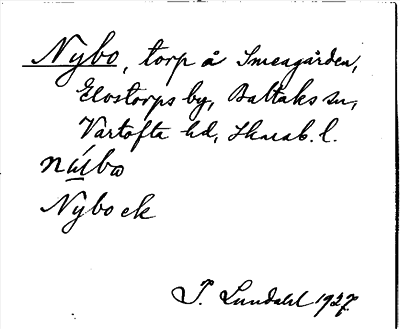 Nybo, torp å Smeagården,
Elostorps by, Baltaks sn,
Vartofta hd, Skarab. l.
Nybo ek
J. Lundahl 1927.